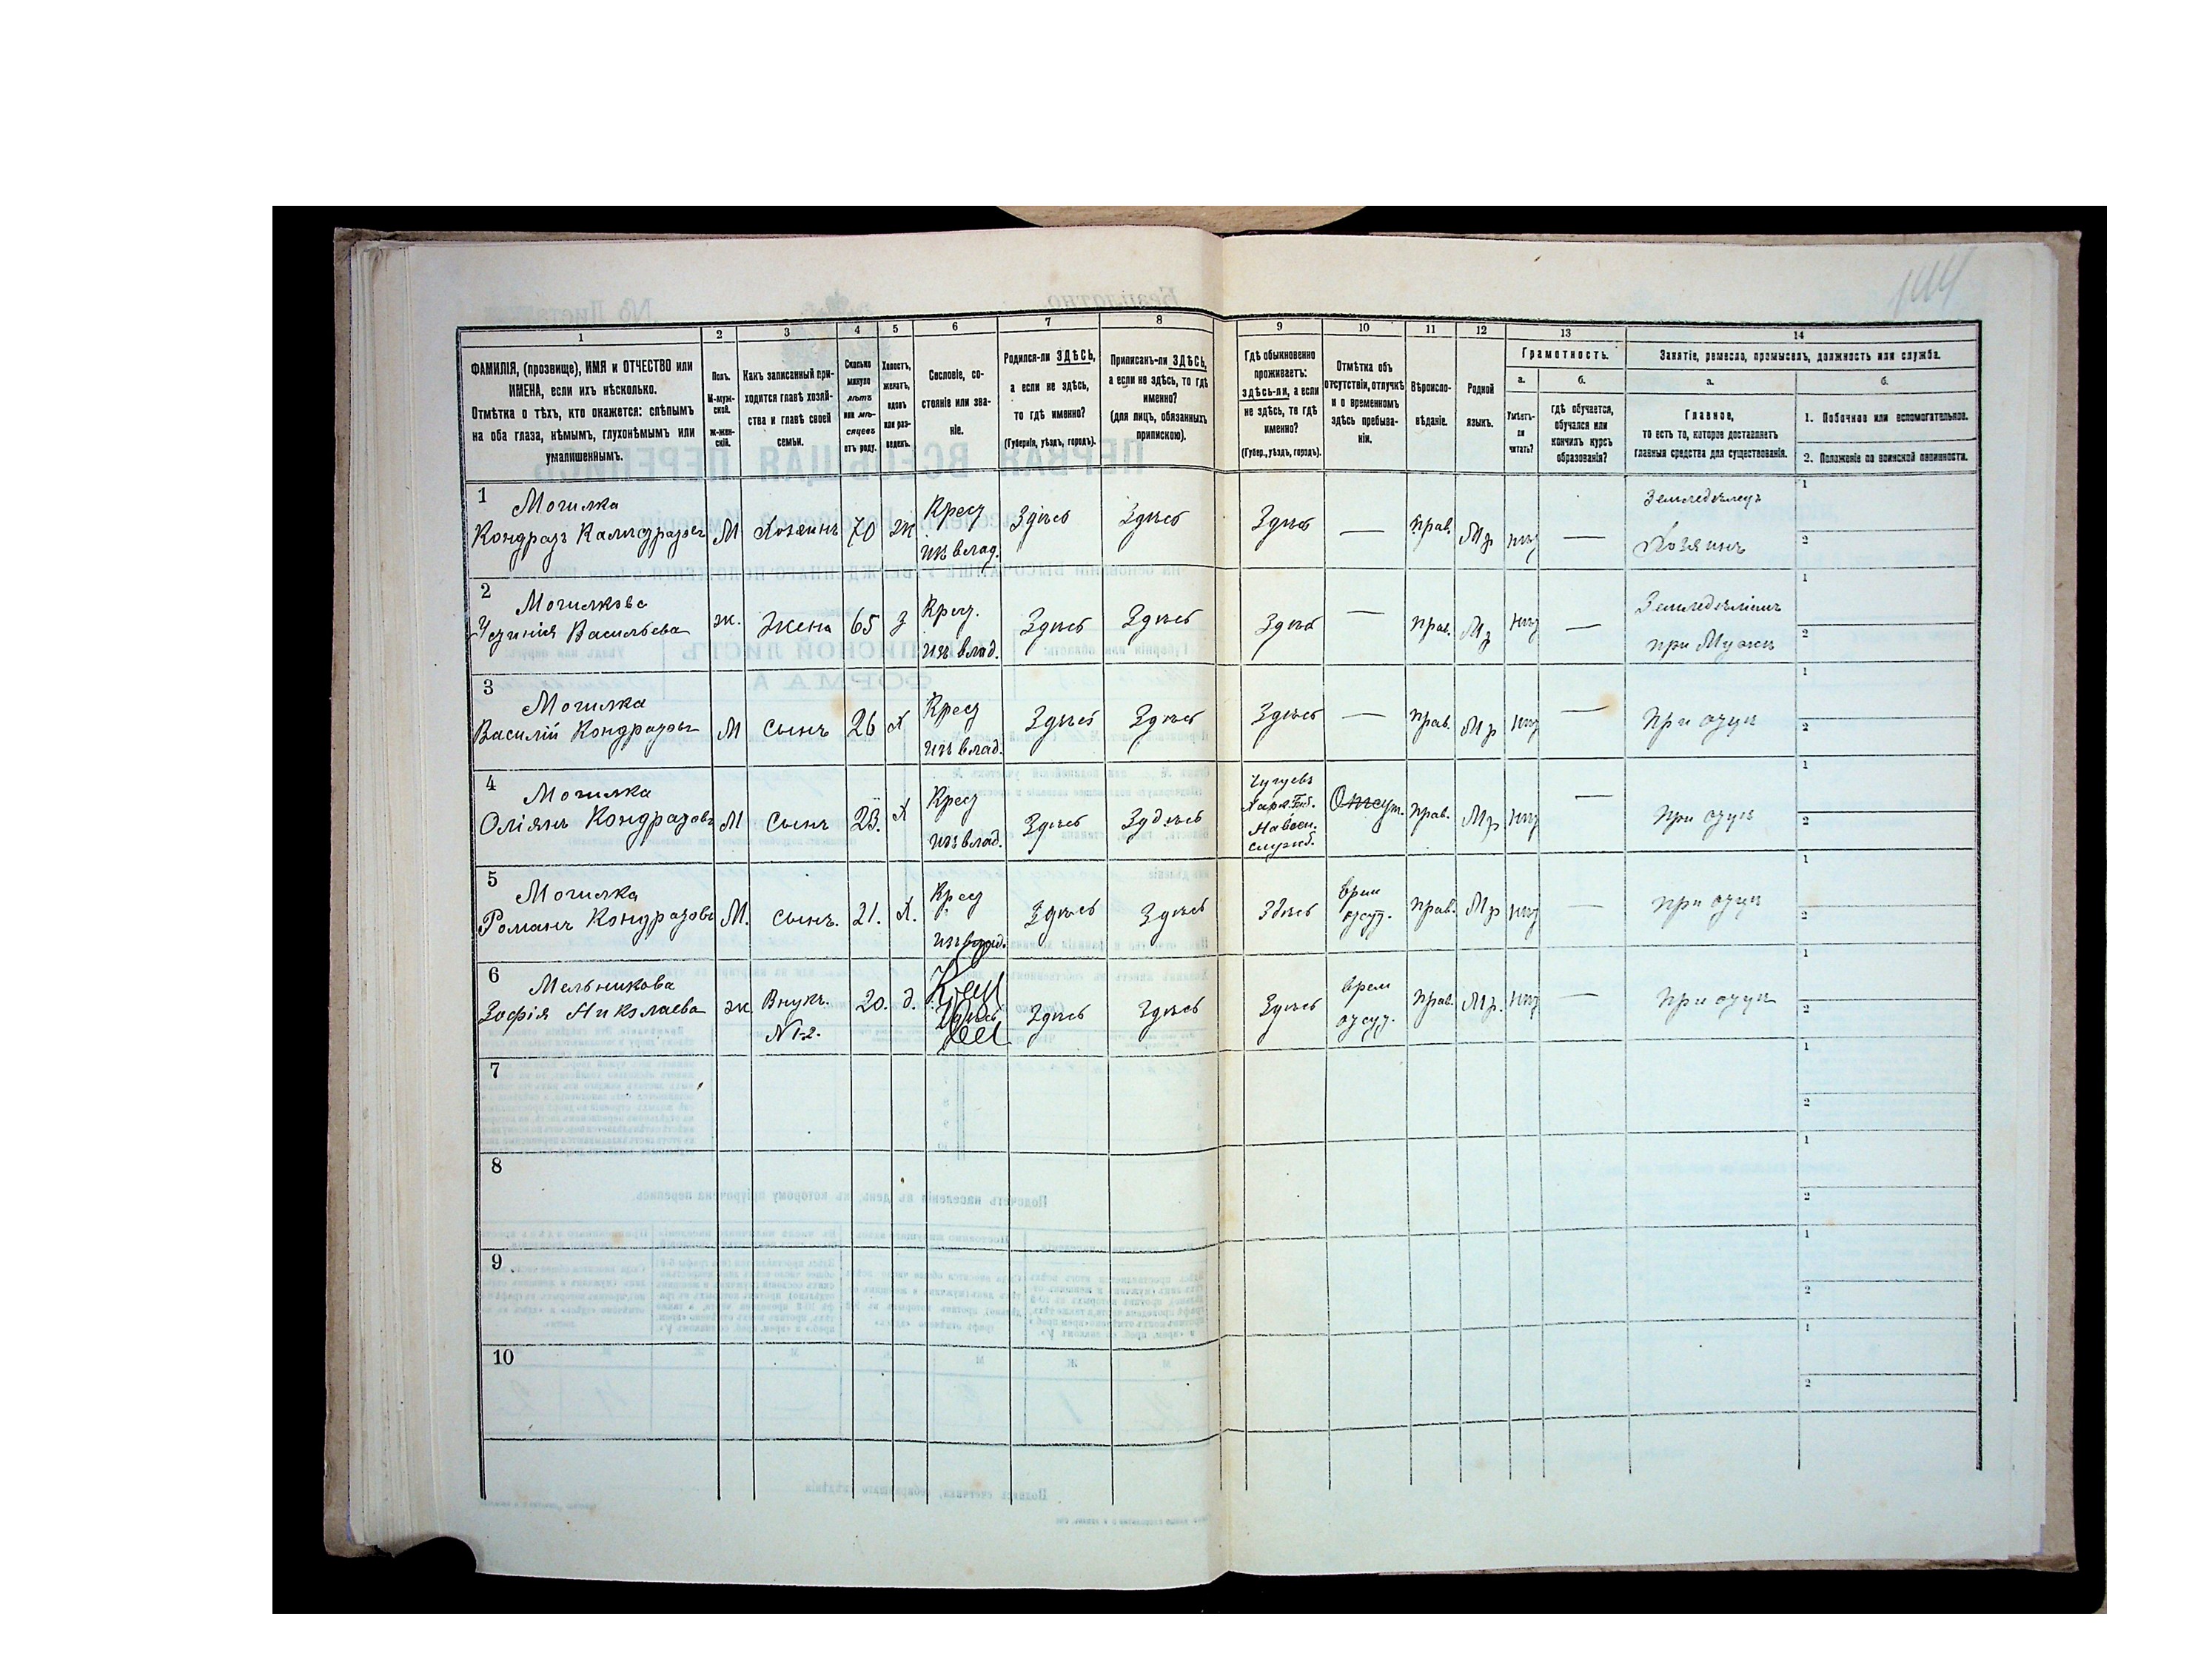 144
1
2
3
4
5
6
7
8
9
10
11
12
13
14
ФАМИЛІЯ, (прозвище), ИМЯ и ОТЧЕСТВО или
ИМЕНА, если ихъ нѣсколько.
Отмѣтка о тѣхъ, кто окажется: слѣпымъ
на оба глаза, нѣмымъ, глухонѣмымъ или
умалишеннымъ.
Полъ.
М-муж-
ской.
Ж-жен-
скій.
Какъ записанный при-
ходится главѣ хозяй-
ства и главѣ своей
семьи.
Сколько
минуло
лѣтъ
или мѣ-
сяцевъ
отъ роду.
Холостъ,
женатъ,
вдовъ
или раз-
веденъ.
Сословіе, со-
стояніе или зва-
ніе.
Родился-ли ЗДѢСЬ,
а если не здѣсь,
то гдѣ именно?
(Губернія, уѣздъ, городъ).
Приписанъ-ли ЗДѢСЬ,
а если не здѣсь, то гдѣ
именно?
(для лицъ, обязанныхъ
припискою).
Гдѣ обыкновенно
проживаетъ:
здѣсь-ли, а если
не здѣсь, то гдѣ
именно?
(Губер., уѣздъ, городъ).
Отмѣтка объ
отсутствіи, отлучкѣ
и о временномъ
здѣсь пребыва-
ніи.
Вѣроиспо-
вѣданіе.
Родной
языкъ.
Грамотность.
а.
Умѣетъ-
ли
читать?
б.
гдѣ обучается,
обучался или
кончилъ курсъ
образованія?
Занятіе, ремесло, промыселъ, должность или служба.
а.
Главное,
то есть то, которое доставляетъ
главныя средства для существованія.
б.
1. Побочное или вспомогательное.
2. Положеніе по воинской повинности.
1
Могилка
Кондратъ
М
Хозяинъ
70
Крест
изъ влад.
Здѣсь
Здѣсь
Здѣсь
—
прав.
Мр
нѣт
—
Земледѣлецъ
Хозяинъ
1
2
2
Могилкова
Васильева
ж.
Жена
65
з
Крест.
изъ влад.
Здѣсь
Здѣсь
Здѣсь
—
прав.
Мр
нѣт
—
при Мужѣ
1
2
3
Могилка
Василій Кондратовъ
М
сынъ
26
Х
Крест
изъ влад.
Здѣсь
Здѣсь
Здѣсь
—
прав.
Мр
нѣт
—
при отцѣ
1
2
4
Могилка
Оліянъ Кондратовъ
М
сынъ
23.
Х
Крест
изъ влад.
Здѣсь
Здѣсь
Чугуевъ
Харк. Губ.
На воен.
служб.
Отсут.
прав.
Мр
нѣт
—
при отцѣ
1
2
5
Могилка
Романъ Кондратовъ
М.
сынъ.
21.
Х.
Крест
изъ влад.
Здѣсь
Здѣсь
Здѣсь
врем
отсут.
прав.
Мр
нѣт
—
при отцѣ
1
2
6
Мельникова
Зофія Николаева
ж.
Внук.
N 1-2.
20.
д.
Крест
Здѣсь
Здѣсь
Здѣсь
врем
отсут.
прав.
Мр.
нѣт
—
при отцѣ
1
2
7
1
2
8
1
2
9
1
2
10
1
2